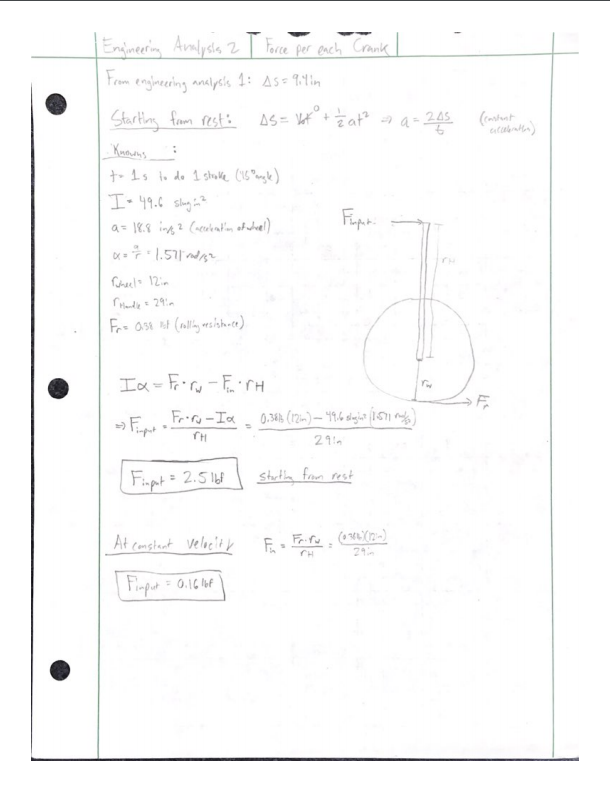 Engineering Analysis 2 Force per each Crank
From engineering analysis 1: Δs = 9.4in
Starting from rest: Δs = V₀t⁰ + ½at² ⇒ a = 2Δs/t (constant acceleration)
Knowns:
t = 1s to do 1 stroke (45° angle)
I = 49.6 slug·in²
a = 18.8 in/s² (acceleration of wheel)
α = a/r = 1.571 rad/s²
r wheel = 12in
r Handle = 29in
Fr = 0.38 lbf (rolling resistance)
Finput
rH
rw
Fr
Iα = Fr·rw − Fin·rH
⇒ Finput = (Fr·rw − Iα)/rH = (0.38lb(12in) − 49.6 slug in²(1.571 rad/s²))/29in
Finput = 2.5 lbf starting from rest
At constant velocity Fin = Fr·rw/rH = (0.38lb)(12in)/29in
Finput = 0.16 lbf